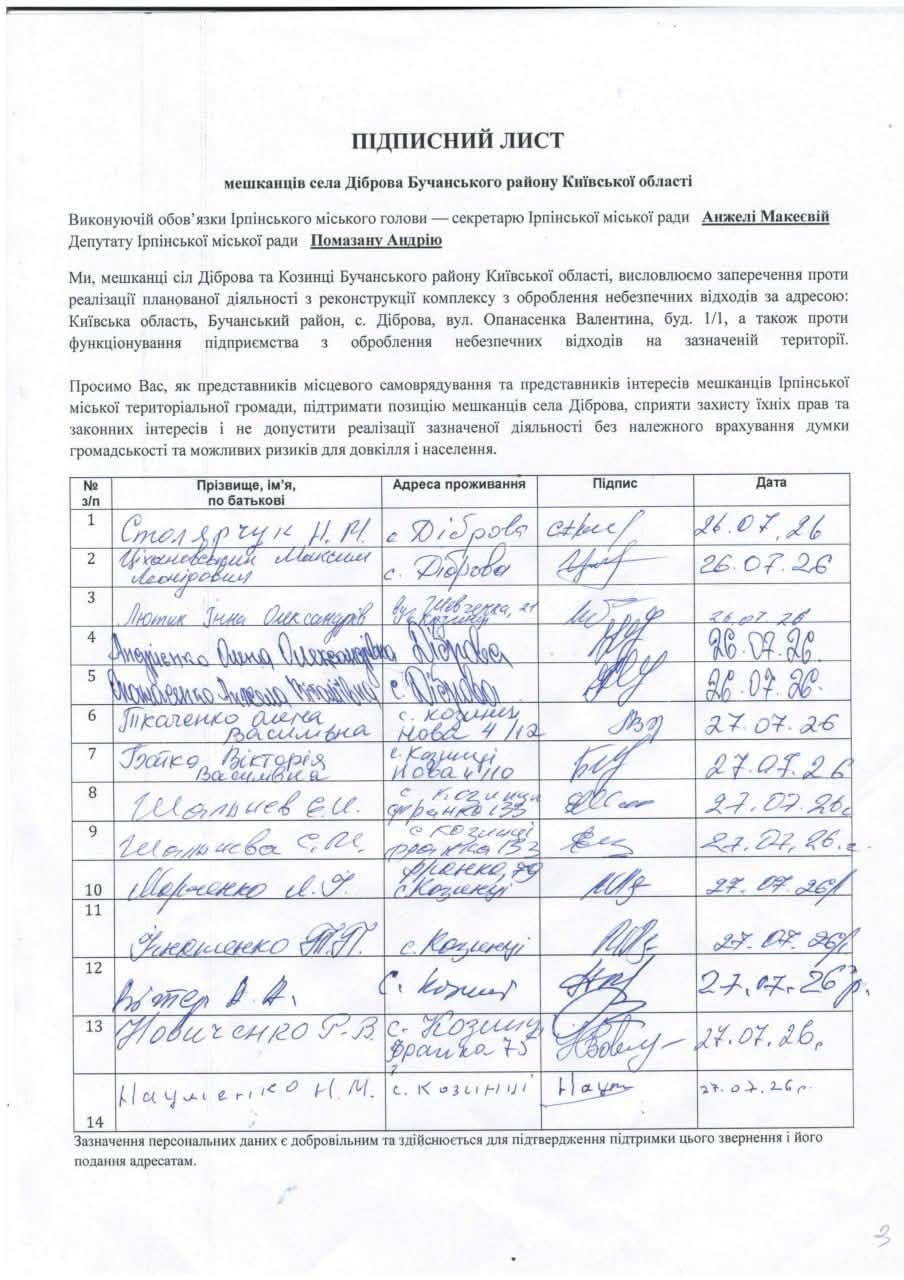 ПІДПИСНИЙ ЛИСТ
мешканців села Діброва Бучанського району Київської області
Виконуючій обов’язки Ірпінського міського голови — секретарю Ірпінської міської ради Анжелі Макеєвій
Депутату Ірпінської міської ради Помазану Андрію
Ми, мешканці сіл Діброва та Козинці Бучанського району Київської області, висловлюємо заперечення проти
реалізації планованої діяльності з реконструкції комплексу з оброблення небезпечних відходів за адресою:
Київська область, Бучанський район, с. Діброва, вул. Опанасенка Валентина, буд. 1/1, а також проти
функціонування підприємства з оброблення небезпечних відходів на зазначеній території.
Просимо Вас, як представників місцевого самоврядування та представників інтересів мешканців Ірпінської
міської територіальної громади, підтримати позицію мешканців села Діброва, сприяти захисту їхніх прав та
законних інтересів і не допустити реалізації зазначеної діяльності без належного врахування думки
громадськості та можливих ризиків для довкілля і населення.
№ Прізвище, ім’я, Адреса проживання Підпис Дата
з/п по батькові
1 Столярчук Н. М. с Діброва 26.07.26
2 Ціхановський Максим
Леонідович с. Діброва 26.07.26
3 Лютик Інна Шевченка, 21 26.07.26
4 Андрієнко Олена Олександрівна Діброва 26.07.26.
5 с. Діброва 26.07.26.
6 Ткаченко Олена с. Козинці 27.07.26
Василівна Нова 4/12
7 Бойко Вікторія с. Козинці 27.07.26
Василівна Нова
8 с Козинці 27.07.26
Франко 133
9 С.М. с Козинці 27.07.26.
10 Марченко Франко, 79 27.07.26
с Козинці
11 Т.П. с. Козинці 27.07.26
12 Вітер А. А. с. Козинці 27.07.26 р.
13 Новиченко Р.В. с. Козинці 27.07.26
Франка 75
14 Науменко Н. М. с. Козинці 27.07.26 р.
Зазначення персональних даних є добровільним та здійснюється для підтвердження підтримки цього звернення і його
подання адресатам.
3